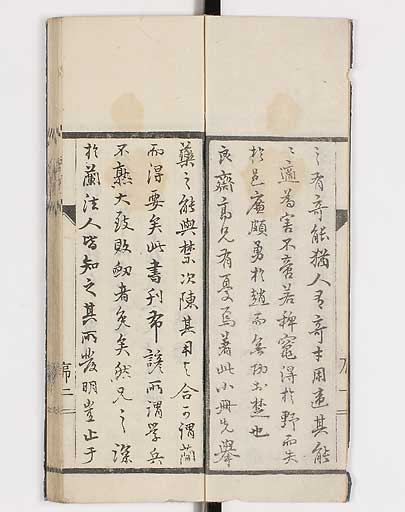 之有奇能猶人有奇才用違其能
之適為害不啻若裨竈得於野而失
於邑廉頗勇於趙而無功於楚也
良齋高兄有憂焉著此小冊先舉
藥之能與禁次陳其用之合可謂簡
而得要矣此書刊布諺所謂學兵
不熟大致敗劒者免矣然兄之深
於蘭法人皆知之其所發明豈止于